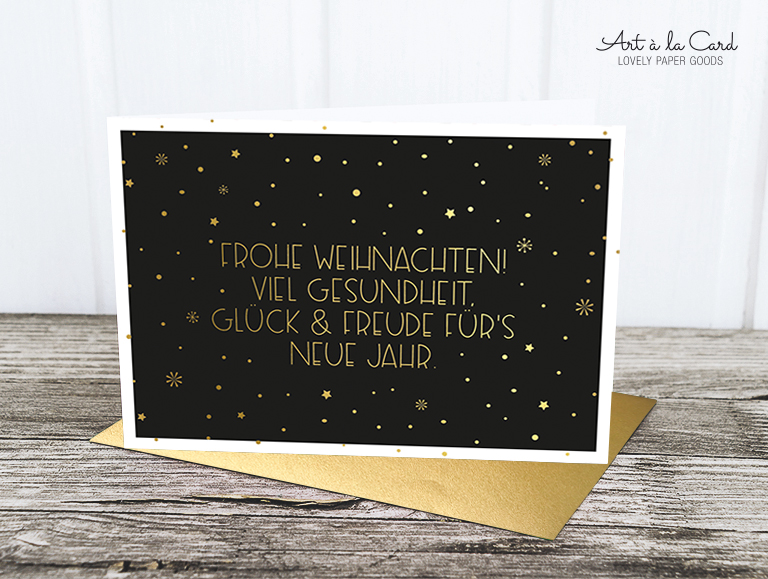 Art à la Card
LOVELY PAPER GOODS
FROHE WEIHNACHTEN!
VIEL GESUNDHEIT,
GLÜCK & FREUDE FÜR'S
NEUE JAHR.